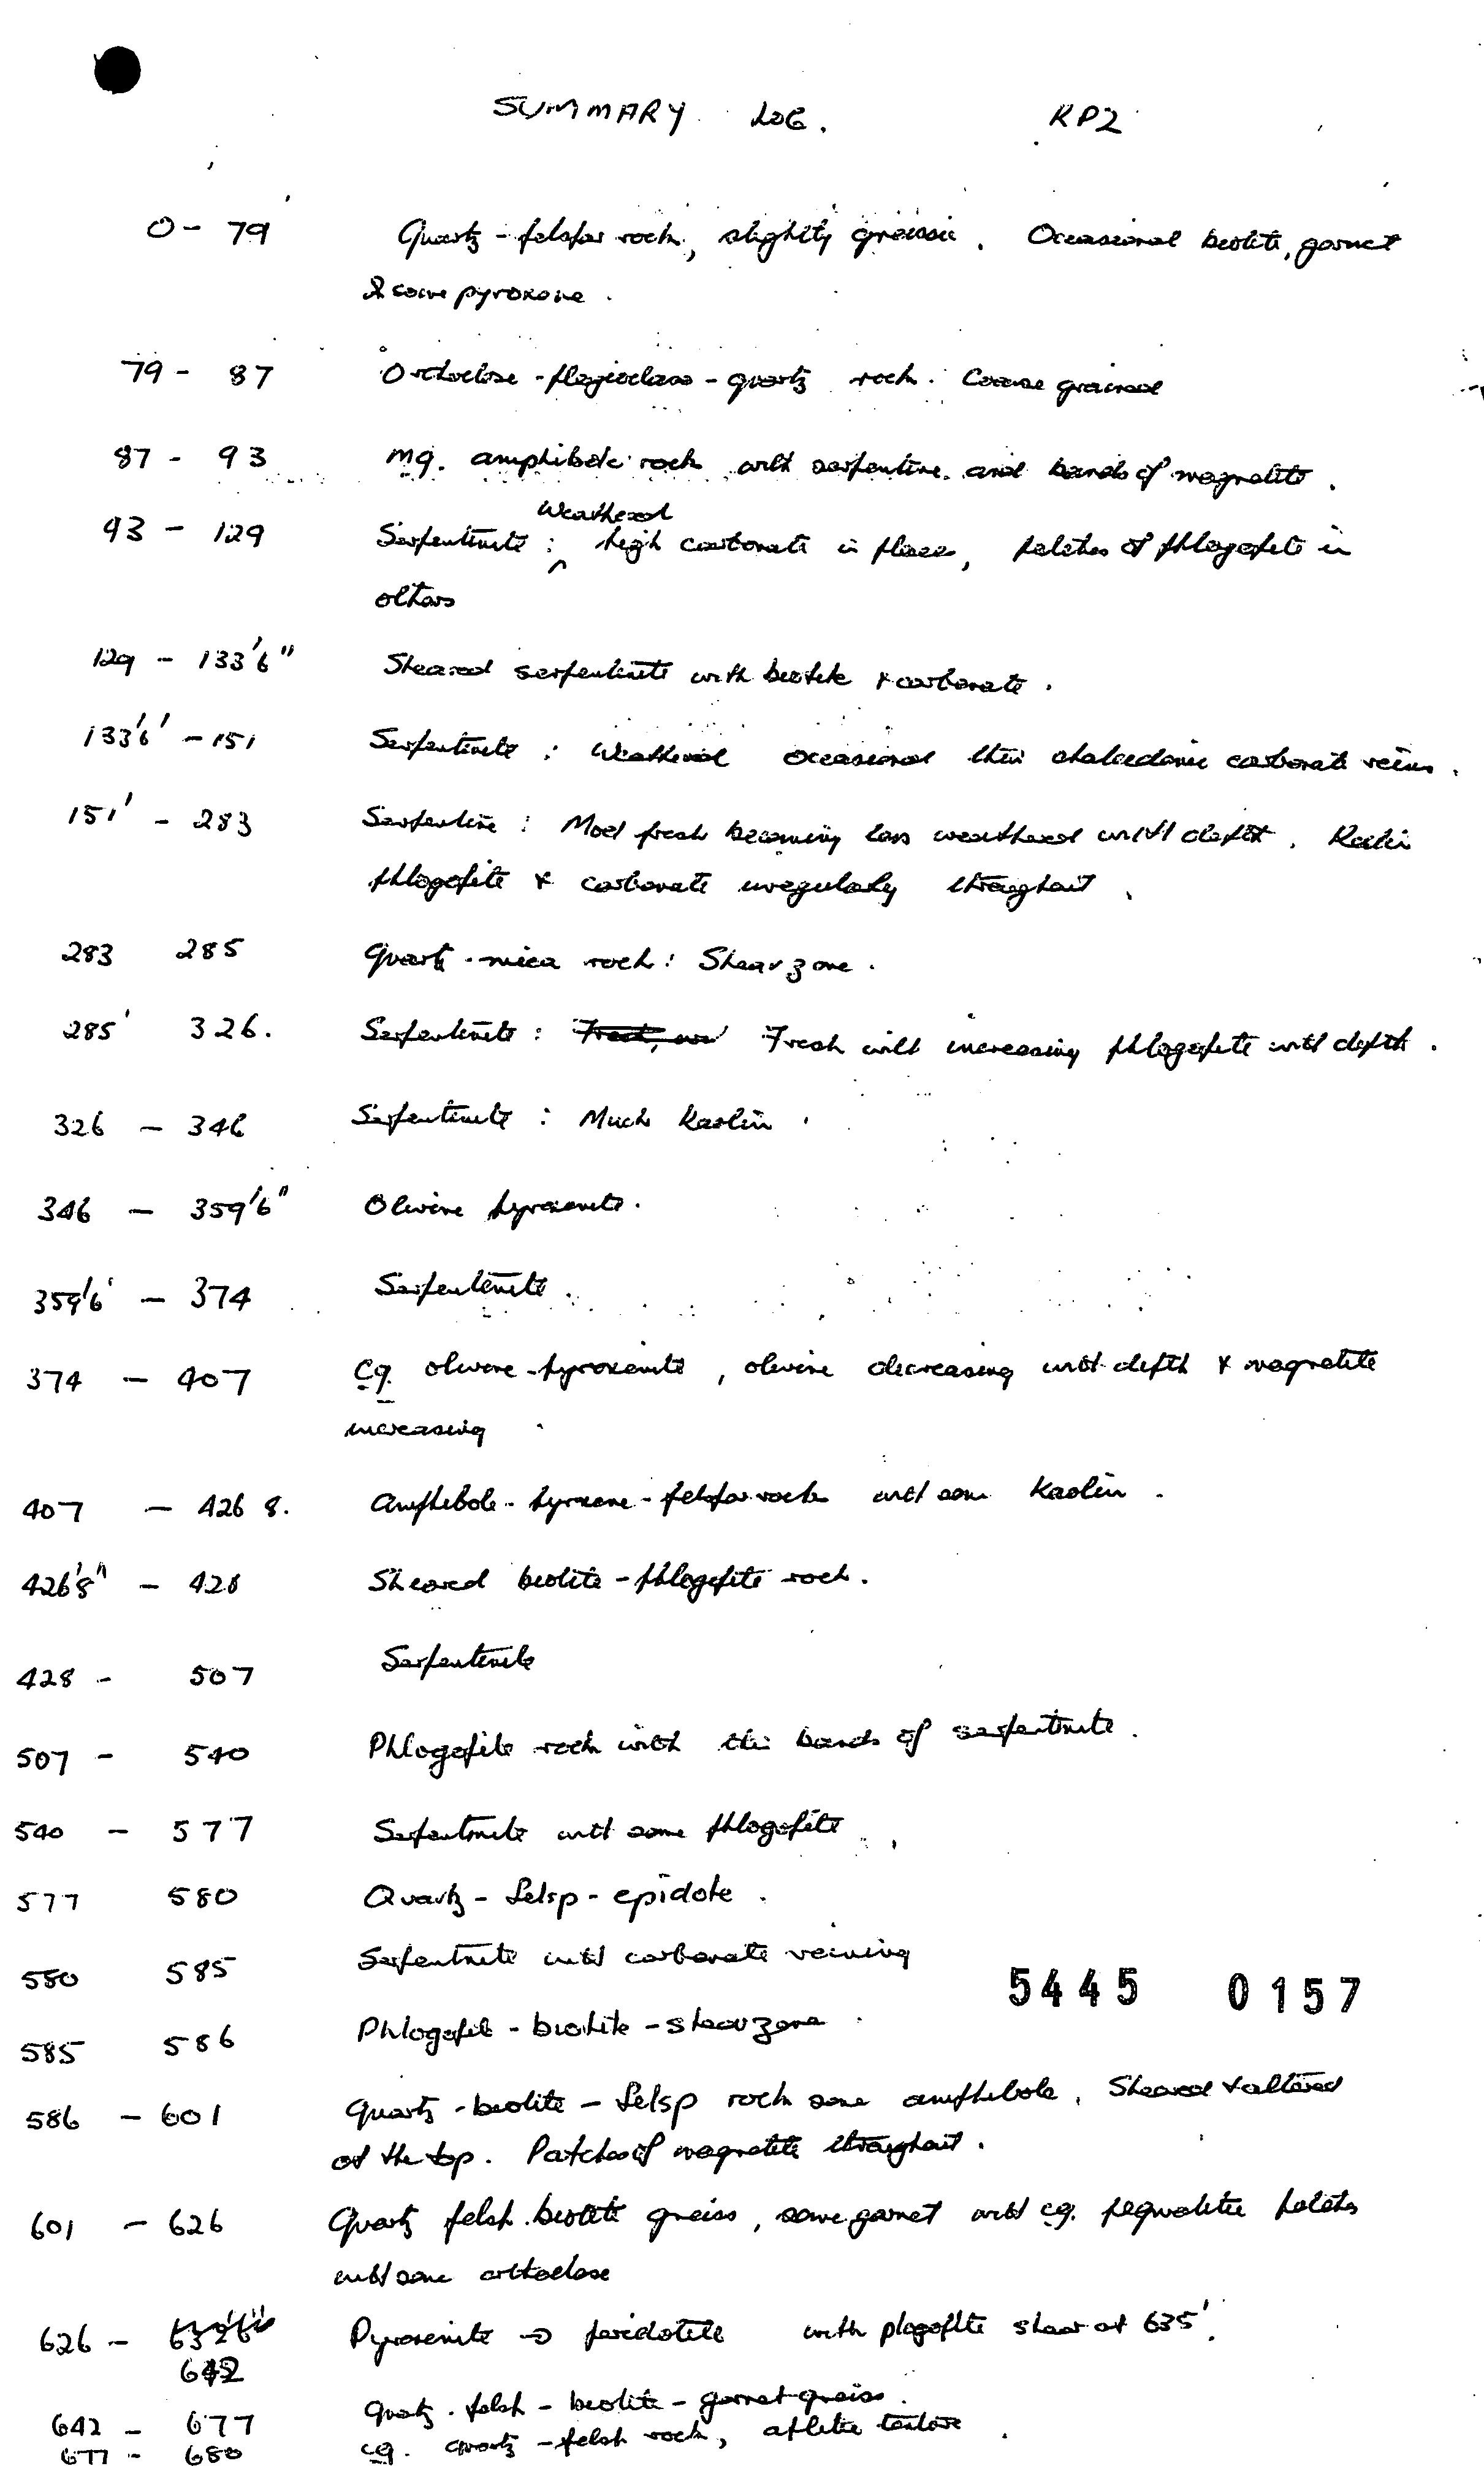 SUMMARY LOG. RP2
0 - 79' Quartz - felspar rock, slightly gneissic. Occasional biotite, garnet
& some pyroxene.
79 - 87 Orthoclase - plagioclase - quartz rock. Coarse grained
87 - 93 mg. amphibole rock with serpentine and bands of magnetite.
93 - 129 Serpentinite : Weathered high carbonate in places, patches of phlogopite in
others
129 - 133'6" Sheared serpentinite with biotite & carbonate.
133'6' - 151 Serpentinite : Weathered occasional thin chalcedonic carbonate veins.
151' - 283 Serpentine : Mod fresh becoming less weathered with depth. Kaolin
phlogopite & carbonate irregularly throughout.
283 285 Quartz - mica rock : Shear zone.
285' 326. Serpentinite : Fresh with increasing phlogopite with depth.
326 - 346 Serpentinite : Much Kaolin.
346 - 359'6" Olivine pyroxenite.
359'6' - 374 Serpentinite.
374 - 407 cg. olivine - pyroxenite, olivine decreasing with depth & magnetite
increasing
407 - 426 8. Amphibole - pyroxene - felspar rock with some Kaolin.
426'8" - 428 Sheared biotite - phlogopite rock.
428 - 507 Serpentinite
507 - 540 Phlogopite rock with thin bands of serpentinite.
540 - 577 Serpentinite with some phlogopite.
577 580 Quartz - felsp - epidote.
580 585 Serpentinite with carbonate veining
5445 0157
585 586 Phlogopite - biotite - shear zone.
586 - 601 Quartz - biotite - felsp rock some amphibole. Sheared & altered
at the top. Patches of magnetite throughout.
601 - 626 Quartz felsp. biotite gneiss, some garnet with cg. pegmatitic patches
with some orthoclase
626 - 642 Pyroxenite → peridotite with plogopite shear at 635'.
642 - 677 Quartz - felsp - biotite - garnet gneiss.
677 - 680 cg. quartz - felsp rock, aplitic texture.